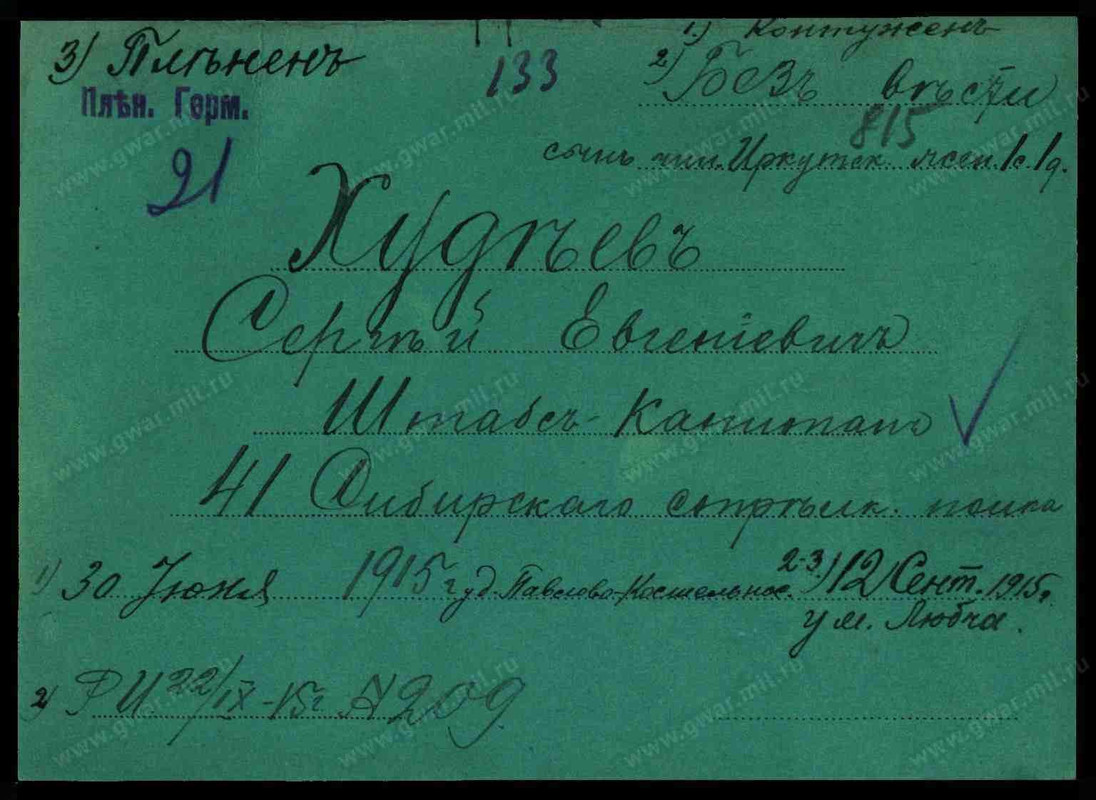 1.) Контуженъ
3) Плѣненъ
133
2) Безъ вѣсти
Плѣн. Герм.
815
91
Иркутск. 1 с. 1 д.
Худѣевъ
Сергѣй Евгеніевичъ
Штабсъ-Капитанъ
41 Сибирскаго стрѣлк. полка
1) 30 Іюня 1915 г у д. Павлово-Костельное. 2-3) 12 Сент. 1915 г.
у м. Любча.
2) Р И 22/IX-15 г. № 209
www.gwar.mil.ru